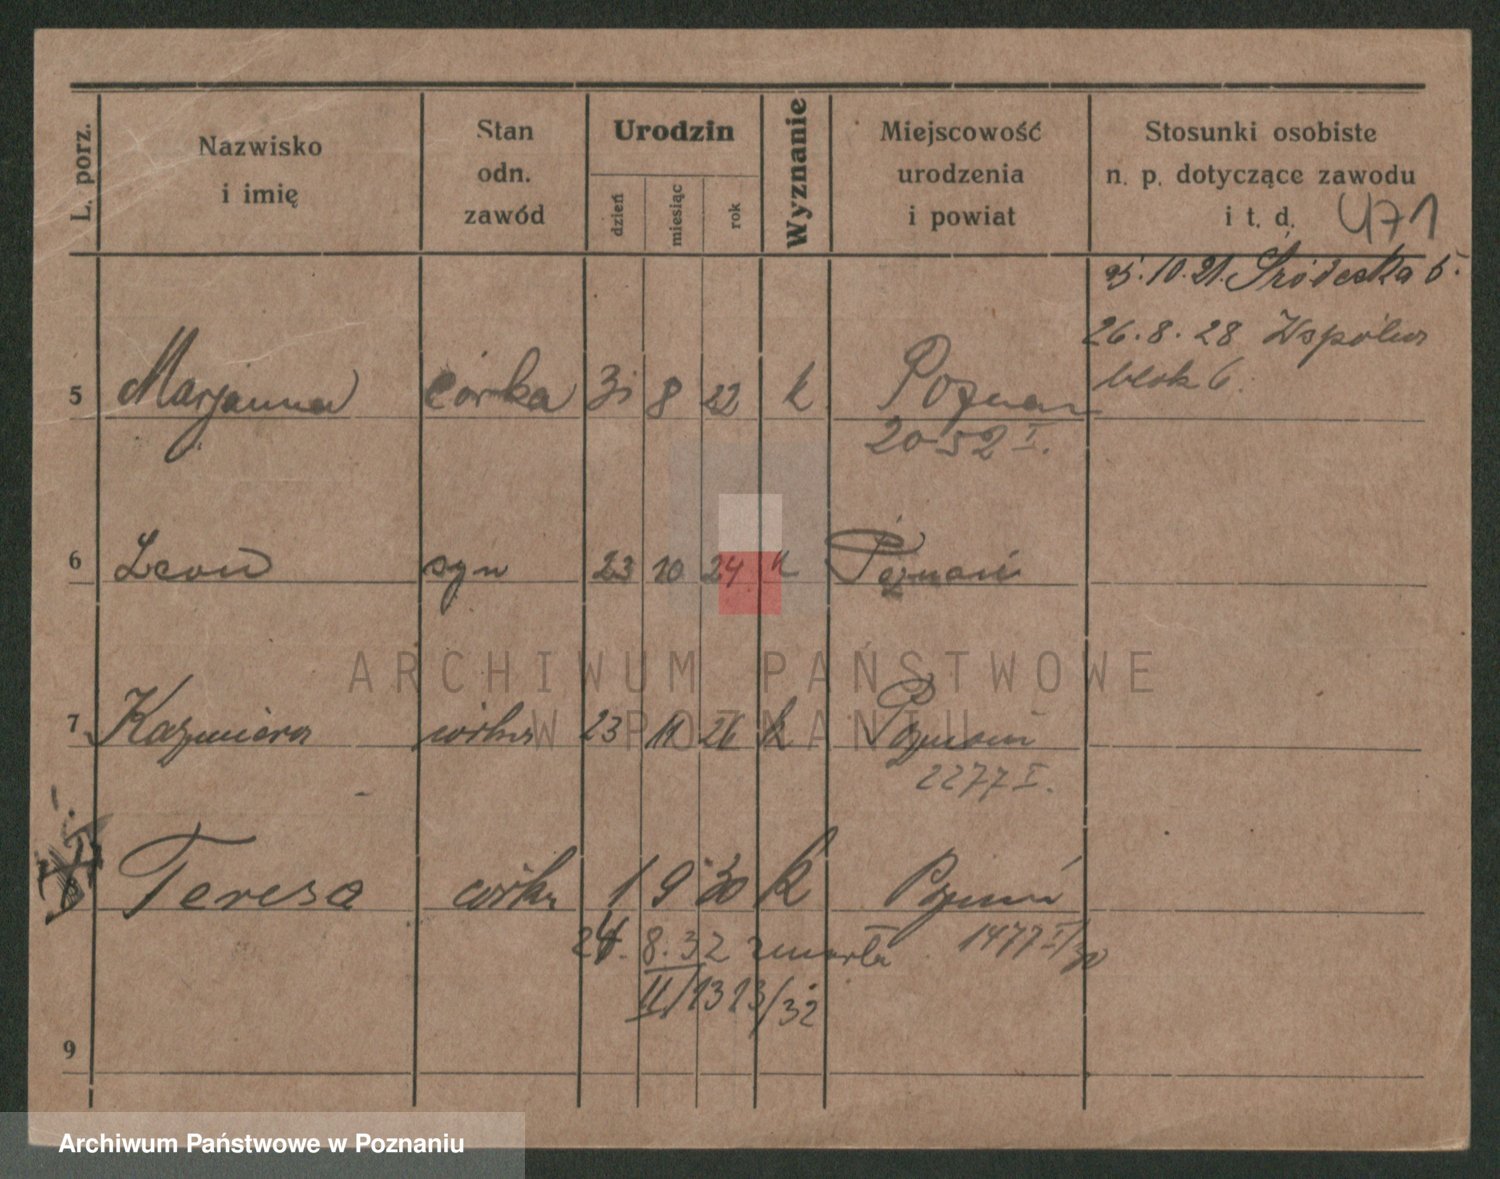 L. porz.
Nazwisko
i imię
Stan
odn.
zawód
Urodzin
dzień
miesiąc
rok
Wyznanie
Miejscowość
urodzenia
i powiat
Stosunki osobiste
n. p. dotyczące zawodu
i t. d. 471
25.10.21. Śródecka 5.
26.8.28 Wspólna
blok 6.
5 Marjanna córka 31 8 22 k Poznań
2052 I.
6 Leon syn 23 10 24 k Poznań
ARCHIWUM PAŃSTWOWE
W POZNANIU
7 Kazimiera córka 23 11 26 k Poznań
2277 I.
Teresa córka 1 9 30 k Poznań
24. 8. 32 zmarła 1477 I/30
II/1313/32
9
Archiwum Państwowe w Poznaniu